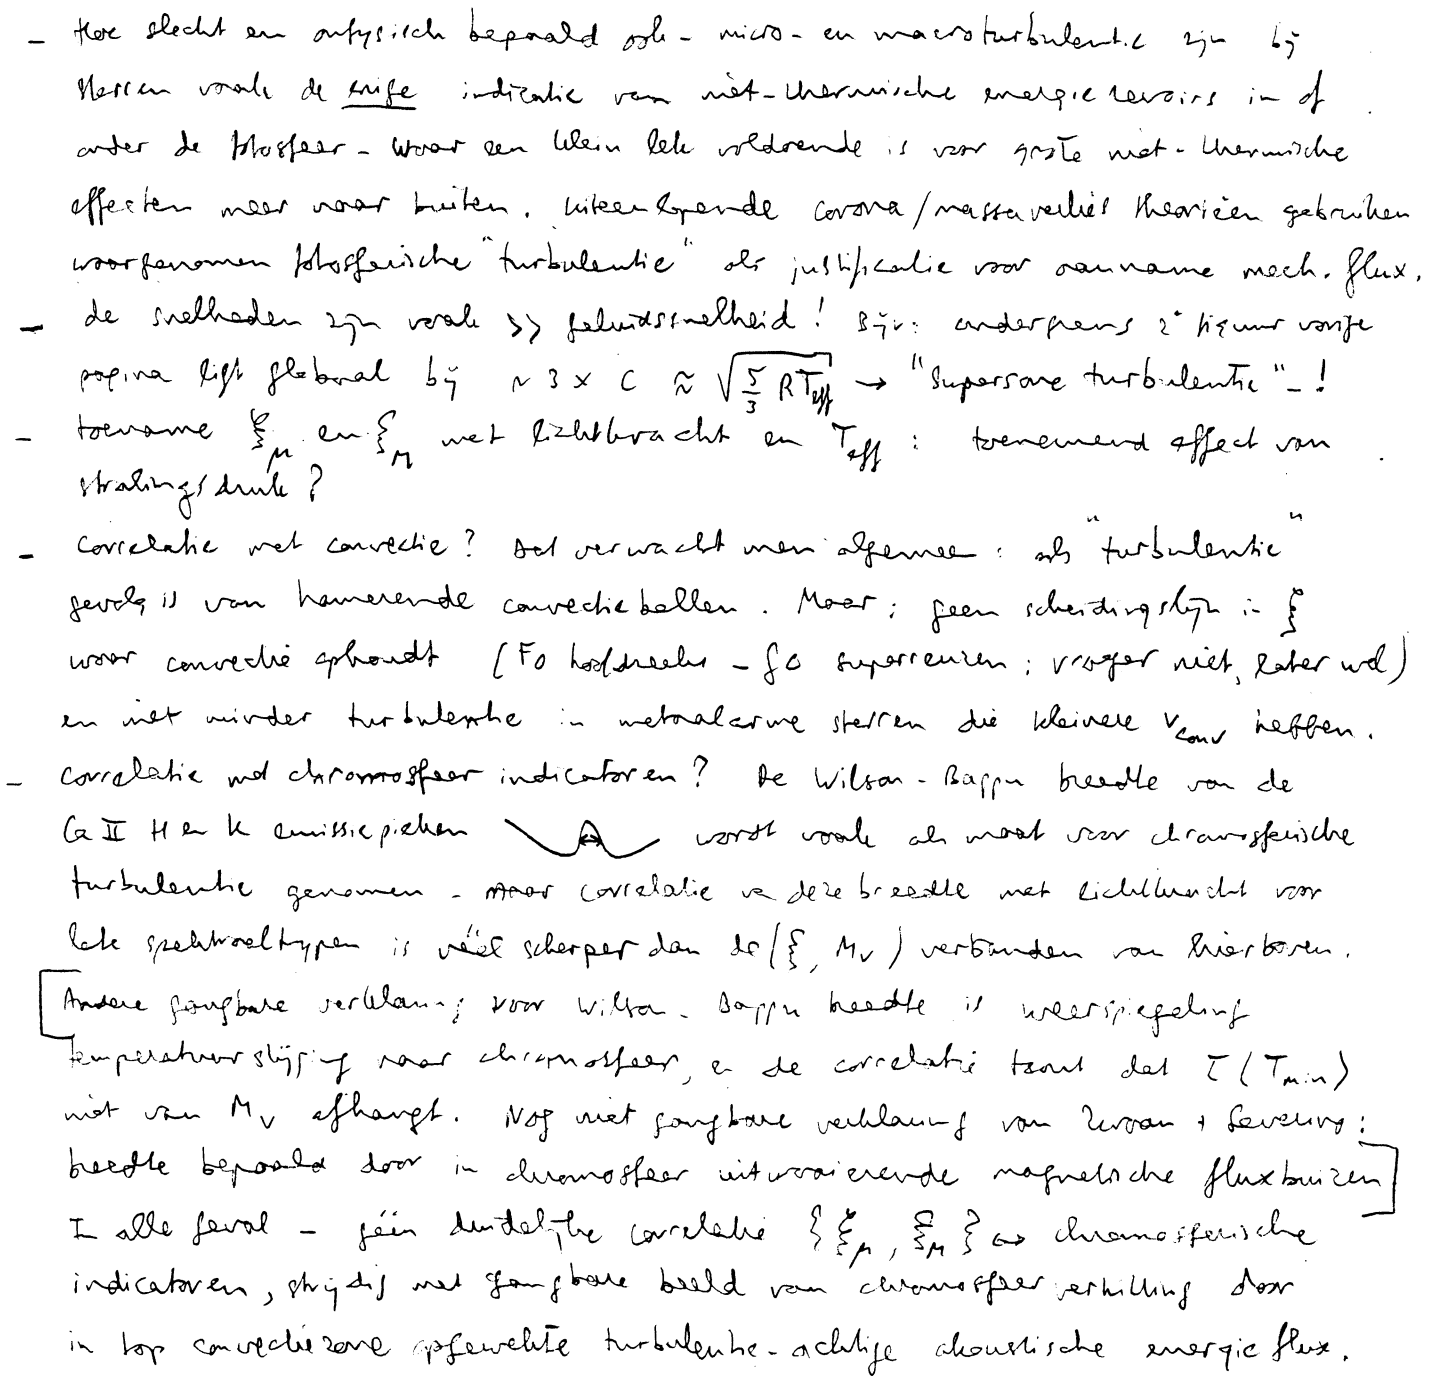 - Hoe slecht en onfysisch bepaald ook - micro- en macroturbulentie zijn bij
sterren vaak de enige indicatie van niet-thermische energierevoirs in of
onder de fotosfeer - waar een klein lek voldoende is voor grote niet-thermische
effecten meer naar buiten. Uiteenlopende corona/massaverlies theorieën gebruiken
waargenomen fotosferische "turbulentie" als justificatie voor aanname mech. flux.
- de snelheden zijn vaak >> geluidssnelheid! Bijv: ondergrens 2e figuur vorige
pagina ligt globaal bij ~ 3 x C ≈ √(5/3 R Teff) → "Supersone turbulentie" - !
- toename ξμ en ξM met lichtkracht en Teff : toenemend effect van
stralingsdruk?
- Correlatie met convectie? Dat verwacht men algemeen : als "turbulentie"
gevolg is van hamerende convectiebellen. Maar : geen scheidingslijn in ξ
waar convectie ophoudt (F0 hoofdreeks - G0 superreuzen : vroeger niet, later wel)
en niet minder turbulentie in metaalarme sterren die kleinere vconv hebben.
- Correlatie met chromosfeer indicatoren? De Wilson-Bappu breedte van de
Ca II H en K emissiepieken wordt vaak als maat voor chromosferische
turbulentie genomen - maar correlatie van deze breedte met lichtkracht voor
late spektraaltypen is véél scherper dan de (ξ, MV) verbanden van hierboven.
[Andere gangbare verklaring voor Wilson-Bappu breedte is weerspiegeling
temperatuurstijging naar chromosfeer, en de correlatie toont dat τ(Tmin)
niet van MV afhangt. Nog niet gangbare verklaring van Zwaan +
breedte bepaald door in chromosfeer uitwaaierende magnetische fluxbuizen]
In alle geval - géén duidelijke correlatie {ξμ, ξM} ↔ chromosferische
indicatoren, strijdig met gangbare beeld van chromosfeerverhitting door
in top convectiezone opgewekte turbulentie-achtige akoustische energieflux.